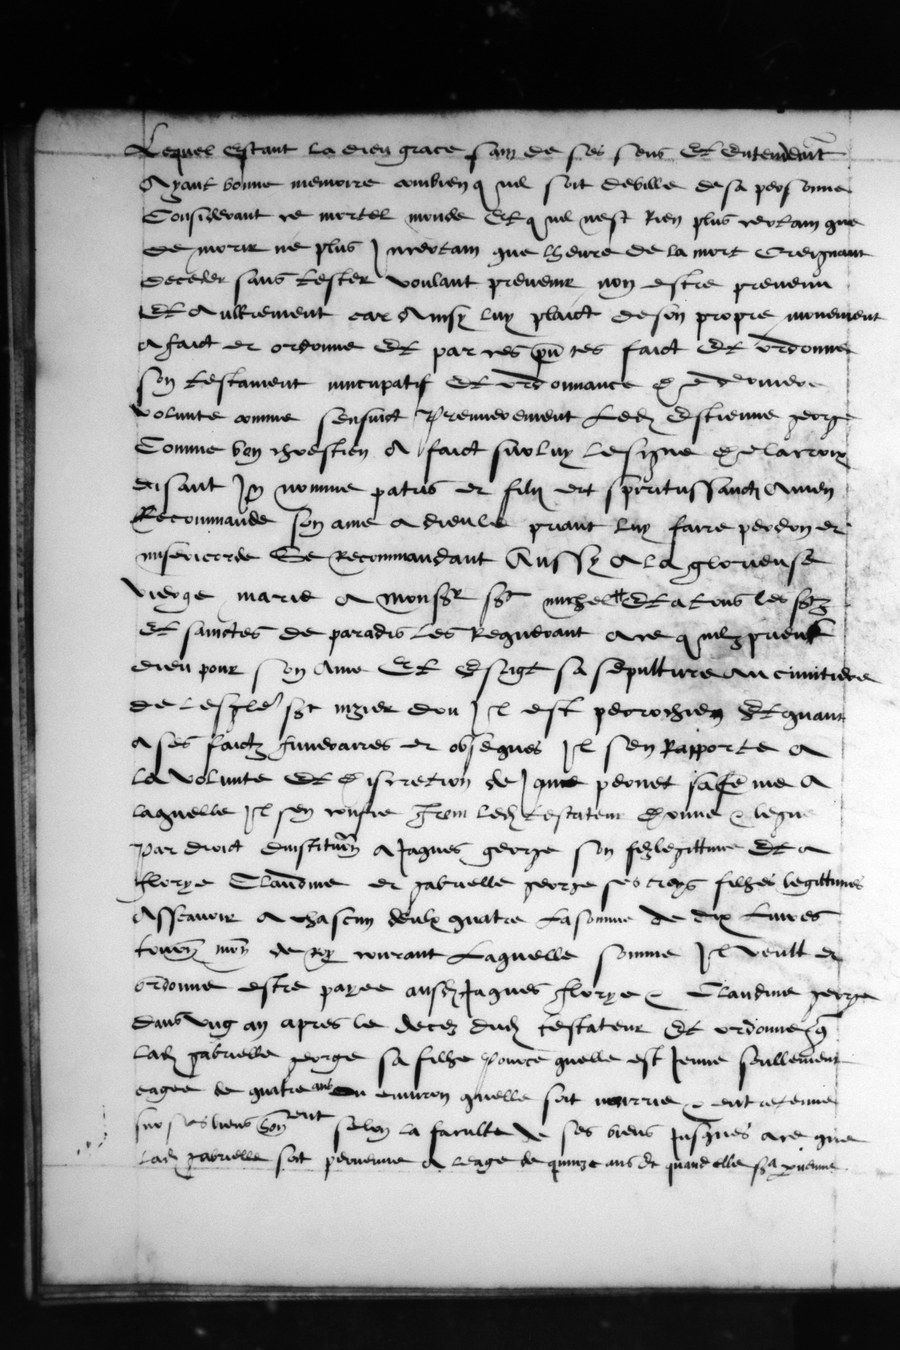 Lequel estant la dieu grace sain de ses sens et entendemt
Ayant bonne memoire combien q uil soit deville de sa personne
Considerant ce mortel monde Et q uil nest Rien plus certain que
de morir ne plus Incertain que lheure de la mort Creignant
deceder sans tester voulant prevenir non estre prevenu
Et Aultrement car Ainsy luy plaict de son propre mouvement
A faict et ordonne Et par ces pntes faict Et ordonne
son testament nuncupatif Et ordonnance de derniere
volunte comme sensuict Premierement Led Estienne george
Comme bon chrestien A faict sur luy le signe de la croix
disant In nomine patris et filij et spiritussancti Amen
Recommande son ame a dieu le priant luy faire perdon et
misericorde Se Recommandant Aussy A la glorieuse
vierge marie A Monsr st michel Et a tous les stz
Et sainctes de paradis les Requerant a ce q uilz prient
dieu pour son Ame Et Eslight sa sepulture au cimitiere
de lesglè st dou Il est perrochien Et quant
a ses faictz funeraires et obseques Il sen Rapporte A
la volunte Et discretion de pernet sa fème A
laquelle Il sen confie Item led testateur donne & legue
par droict dinstituòn a Jaques george son filz legittime Et A
florye Claudine et gabrielle george ses troys filhes legittimes
Asscavoir A chascun deulx quatre la somme de dix livres
tourn mon de Roy courant Laquelle somme Il veult et
ordonne estre payee ausd Jaques florye & Claudine george
dans ung an apres le decez dud testateur Et ordonne q
lad gabrielle george sa filhe pource quelle est Jeune seullement
eagee de quatre ans ou environ quelle soit nourrie & entretenue
sur ses biens selon la faculte de ses biens Jusques a ce que
lad gabrielle soit pervenue A leage de quinze ans Et quand elle sera